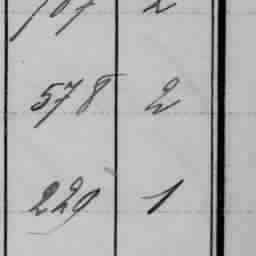 578 2
229 1